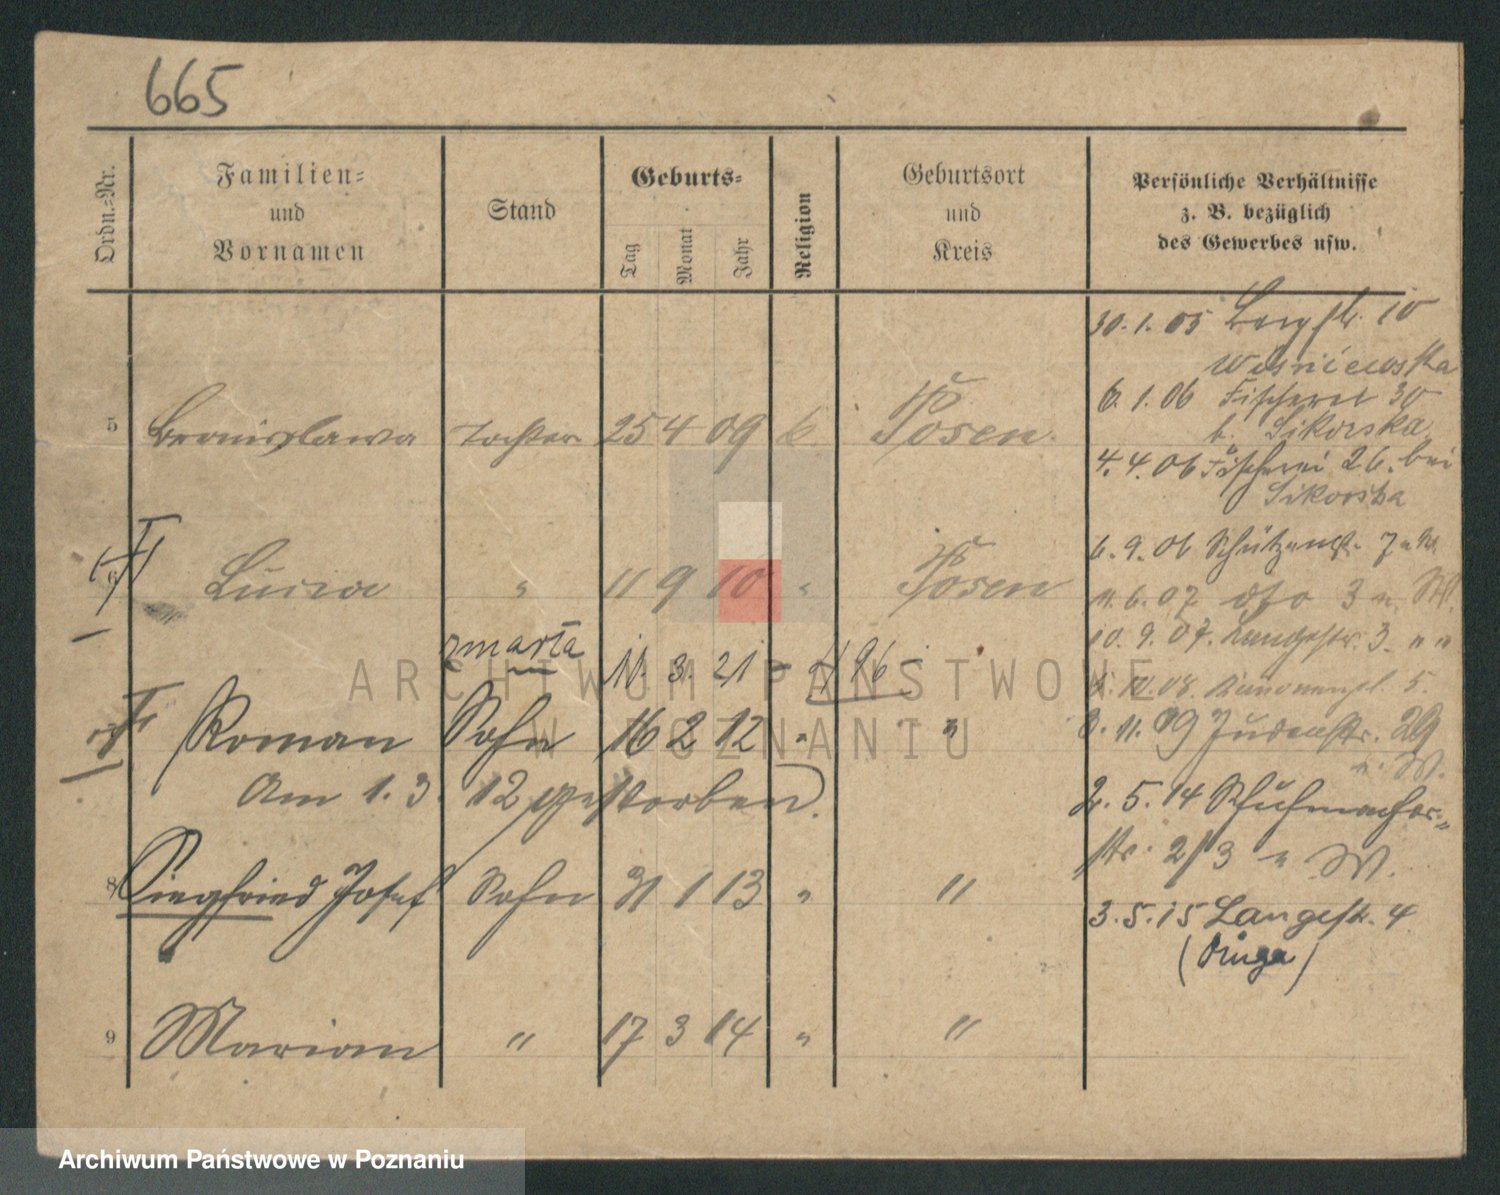 665
Ordn.-Nr.
Familien-
und
Vornamen
Stand
Geburts-
Tag
Monat
Jahr
Religion
Geburtsort
und
Kreis
Persönliche Verhältnisse
z. B. bezüglich
des Gewerbes usw.
30.1.05 Bergstr. 10
Wisniewska
6.1.06 Fischerei 30
b. Sikorska
4.4.06 Fischerei 26. bei
Sikorska
6.9.06 Schützenstr. 7
11.6.07 dto 3
10.9.07. Langestr. 3. " "
10.08. 5.
11.09 Judenstr. 29
n. W.
2.5.14 Schuhmacher-
str. 2/3 n W.
3.5.15 Langestr. 4
(Długa)
5 Bronislawa Tochter 25 4 09 k. Posen.
6 Lucia " 11 9 10 " Posen
zmarła 11. 3. 21 - 496
Roman Sohn 16 2 12 " "
Am 1.3. 12 gestorben.
8 Siegfried Josef Sohn 31 1 13 " "
9 Marian " 17 3 14 " "
ARCHIWUM PAŃSTWOWE
W POZNANIU
Archiwum Państwowe w Poznaniu